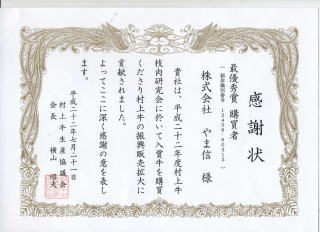 感謝状
最優秀賞 購買者
(個体識別番号 12458-60312)
株式会社 やま信 様
貴社は、平成二十二年度村上牛
枝肉研究会に於いて入賞牛を購買
くださり村上牛の振興販売拡大に
貢献されました。
よってここに深く感謝の意を表し
ます。
平成二十二年七月二十一日
村上牛生産協議会
会長 横山